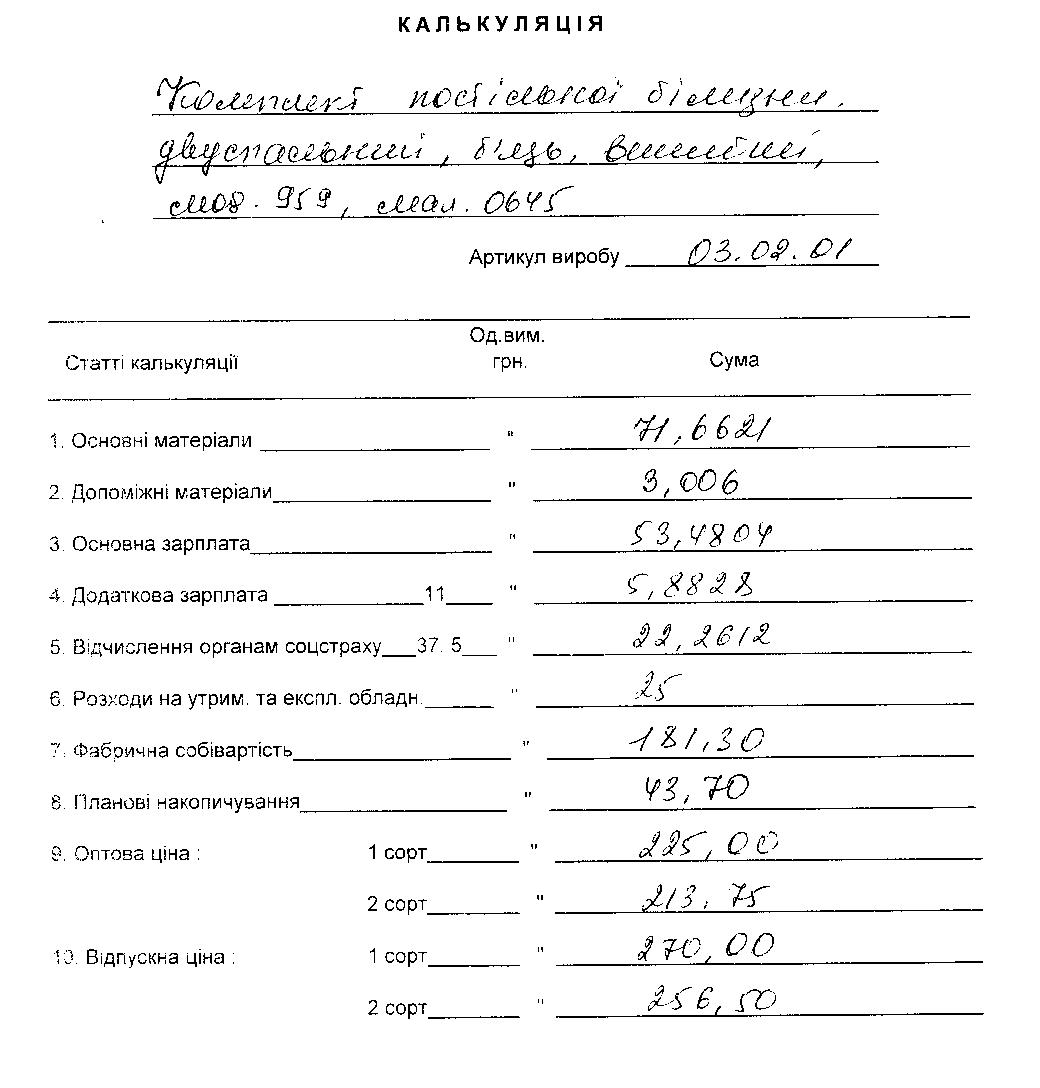 КАЛЬКУЛЯЦІЯ
Комплект постільної білизни.
двуспальный, бязь, вишитий,
мод. 959, мал. 0645
Артикул виробу 03.02.01
Статті калькуляції Од.вим. грн. Сума
1. Основні матеріали " 71,6621
2. Допоміжні матеріали " 3,006
3. Основна зарплата " 53,4804
4. Додаткова зарплата 11 " 5,8828
5. Відчислення органам соцстраху 37. 5 " 22,2612
6. Розходи на утрим. та експл. обладн. " 25
7. Фабрична собівартість " 181,30
8. Планові накопичування " 43,70
9. Оптова ціна : 1 сорт " 225,00
2 сорт " 213,75
10. Відпускна ціна : 1 сорт " 270,00
2 сорт " 256,50